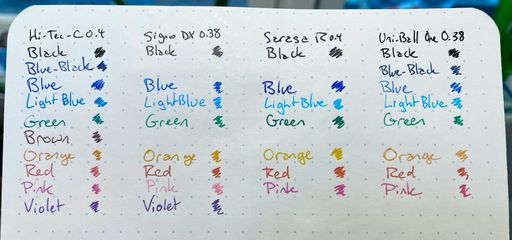 Hi-Tec-C 0.4 Signo DX 0.38 Sarasa R 0.4 Uni-Ball One 0.38
Black Black Black Black
Blue-Black Blue-Black
Blue Blue Blue Blue
Light Blue Light Blue Light Blue Light Blue
Green Green Green Green
Brown
Orange Orange Orange Orange
Red Red Red Red
Pink Pink Pink Pink
Violet Violet